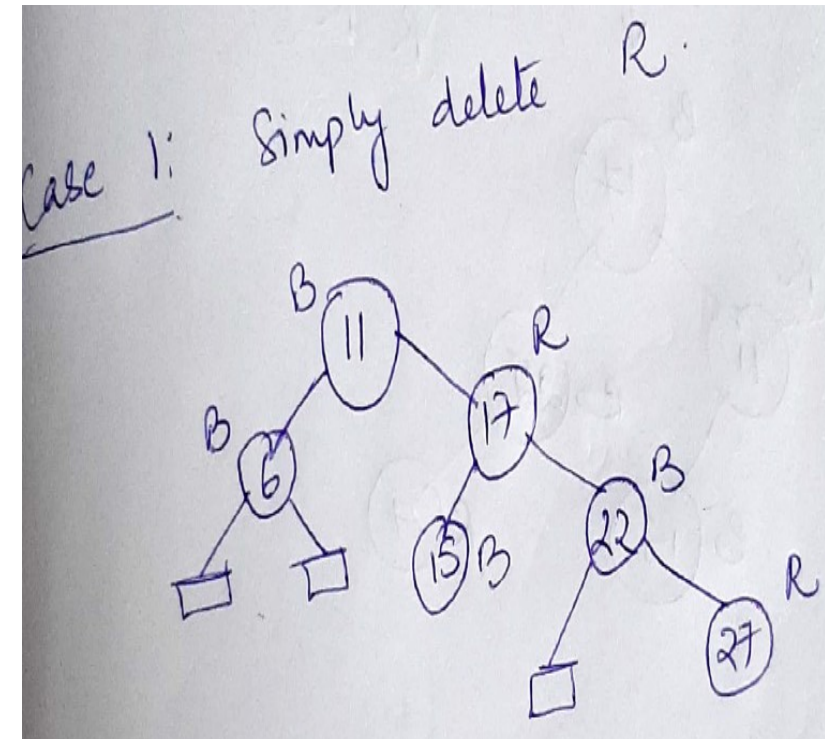 Case 1: Simply delete R.
B
11
R
17
B
6
B
22
15 B
R
27